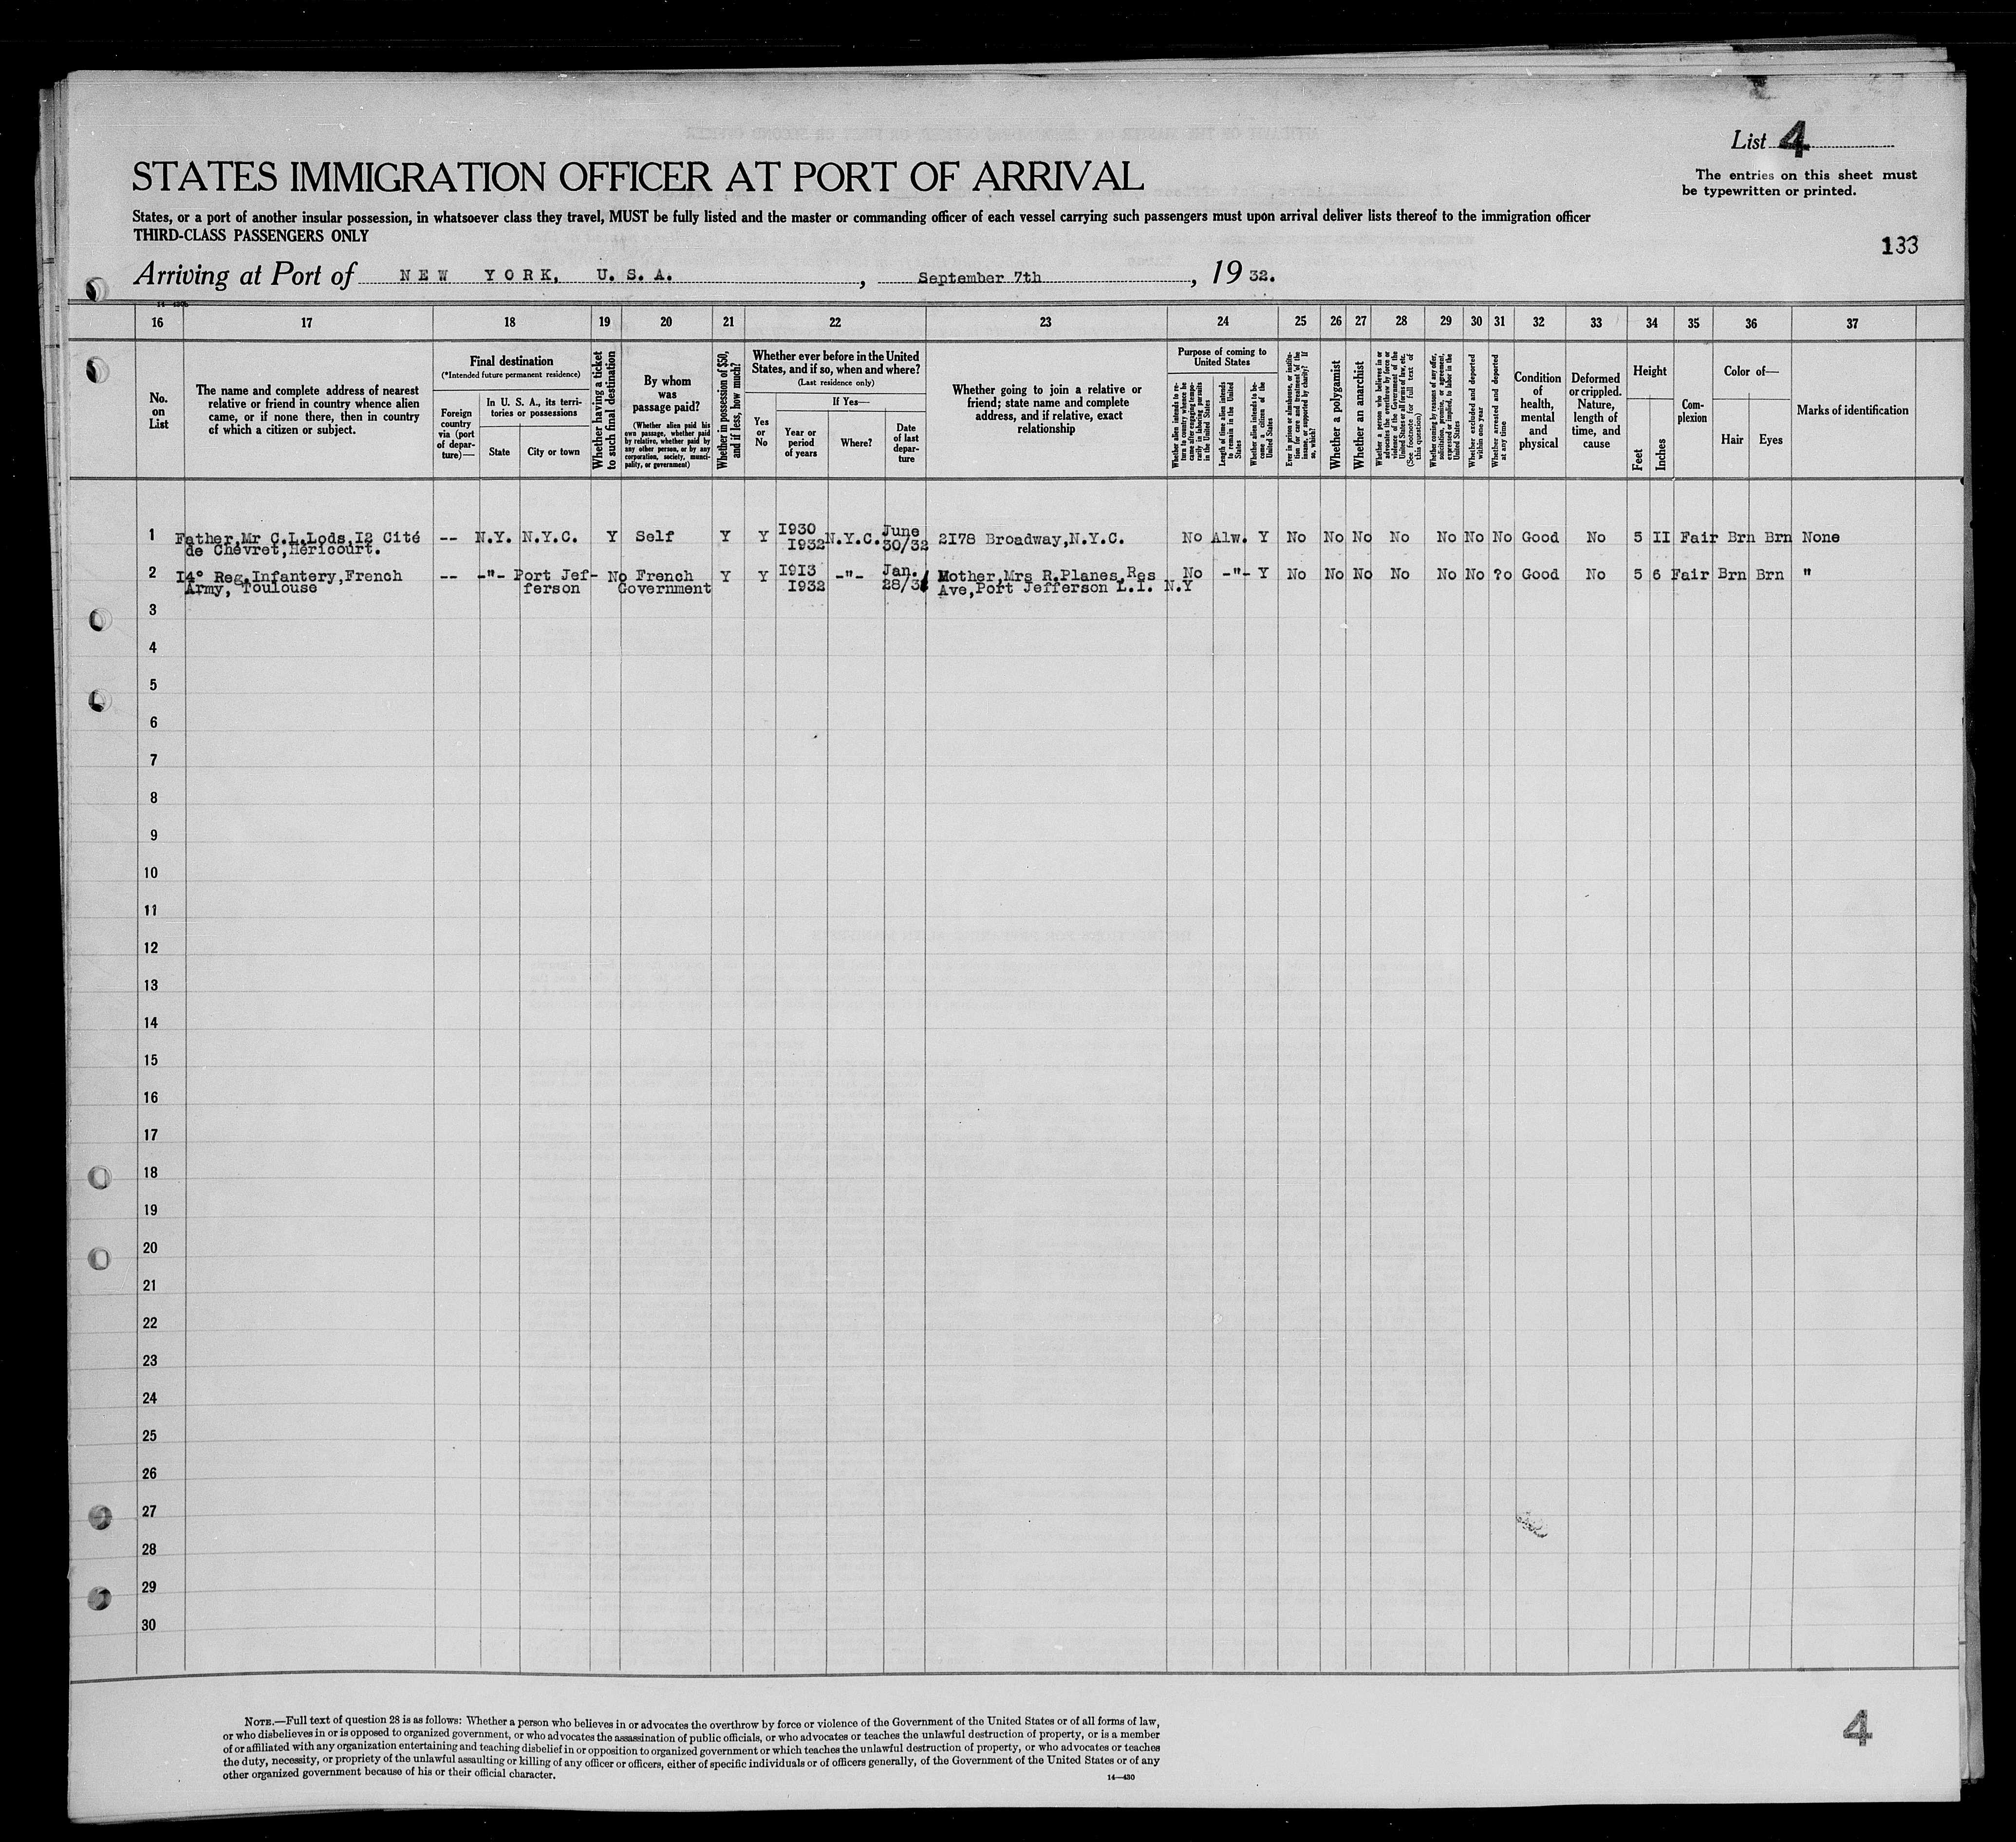 List 4
STATES IMMIGRATION OFFICER AT PORT OF ARRIVAL
The entries on this sheet must
be typewritten or printed.
States, or a port of another insular possession, in whatsoever class they travel, MUST be fully listed and the master or commanding officer of each vessel carrying such passengers must upon arrival deliver lists thereof to the immigration officer
THIRD-CLASS PASSENGERS ONLY
133
Arriving at Port of NEW YORK, U.S.A. , September 7th , 19 32.
16 17 18 19 20 21 22 23 24 25 26 27 28 29 30 31 32 33 34 35 36 37
No.
on
List
The name and complete address of nearest
relative or friend in country whence alien
came, or if none there, then in country
of which a citizen or subject.
Final destination
(*Intended future permanent residence)
Foreign
country
via (port
of depar-
ture)—
In U. S. A., its terri-
tories or possessions
State
City or town
Whether having a ticket
to such final destination
By whom
was
passage paid?
(Whether alien paid his
own passage, whether paid
by relative, whether paid by
any other person, or by any
corporation, society, munici-
pality, or government)
Whether in possession of $50,
and if less, how much?
Whether ever before in the United
States, and if so, when and where?
(Last residence only)
Yes
or
No
If Yes—
Year or
period
of years
Where?
Date
of last
depar-
ture
Whether going to join a relative or
friend; state name and complete
address, and if relative, exact
relationship
Purpose of coming to
United States
Whether alien intends to re-
turn to country whence he
came after engaging tempo-
rarily in laboring pursuits
in the United States
Length of time alien intends
to remain in the United
States
Whether alien intends to be-
come a citizen of the
United States
Ever in prison or almshouse, or institu-
tion for care and treatment of the
insane, or supported by charity? If
so, which?
Whether a polygamist
Whether an anarchist
Whether a person who believes in or
advocates the overthrow by force or
violence of the Government of the
United States or all forms of law, etc.
(See footnote for full text of
this question)
Whether coming by reasons of any offer,
solicitation, promise, or agreement,
expressed or implied, to labor in the
United States
Whether excluded and deported
within one year
Whether arrested and deported
at any time
Condition
of
health,
mental
and
physical
Deformed
or crippled.
Nature,
length of
time, and
cause
Height
Feet
Inches
Com-
plexion
Color of—
Hair
Eyes
Marks of identification
1 Father,Mr C.L.Lods,I2 Cité -- N.Y. N.Y.C. Y Self Y Y I930 N.Y.C. June 2I78 Broadway,N.Y.C. No Alw. Y No No No No No No No Good No 5 II Fair Brn Brn None
de Chevret,Héricourt. I932 30/32
2 I4° Reg.Infantery,French -- -"- Port Jef- No French Y Y I9I3 -"- Jan. Mother,Mrs R.Planes,Res No -"- Y No No No No No No ?o Good No 5 6 Fair Brn Brn "
Army, Toulouse ferson Government I932 28/3 Ave,Port Jefferson L.I. N.Y
3
4
5
6
7
8
9
10
11
12
13
14
15
16
17
18
19
20
21
22
23
24
25
26
27
28
29
30
NOTE.—Full text of question 28 is as follows: Whether a person who believes in or advocates the overthrow by force or violence of the Government of the United States or of all forms of law,
or who disbelieves in or is opposed to organized government, or who advocates the assassination of public officials, or who advocates or teaches the unlawful destruction of property, or is a member
of or affiliated with any organization entertaining and teaching disbelief in or opposition to organized government or which teaches the unlawful destruction of property, or who advocates or teaches
the duty, necessity, or propriety of the unlawful assaulting or killing of any officer or officers, either of specific individuals or of officers generally, of the Government of the United States or of any
other organized government because of his or their official character.
14—430
4